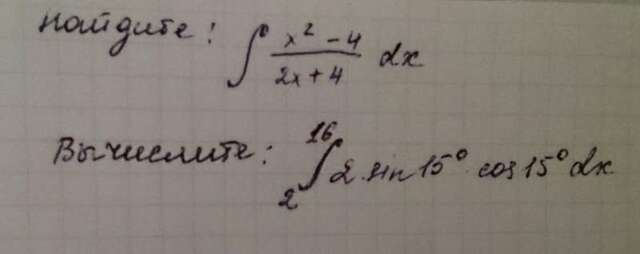 Найдите: ∫ (x² - 4)/(2x + 4) dx
Вычислите: ∫₂¹⁶ 2 sin 15° cos 15° dx